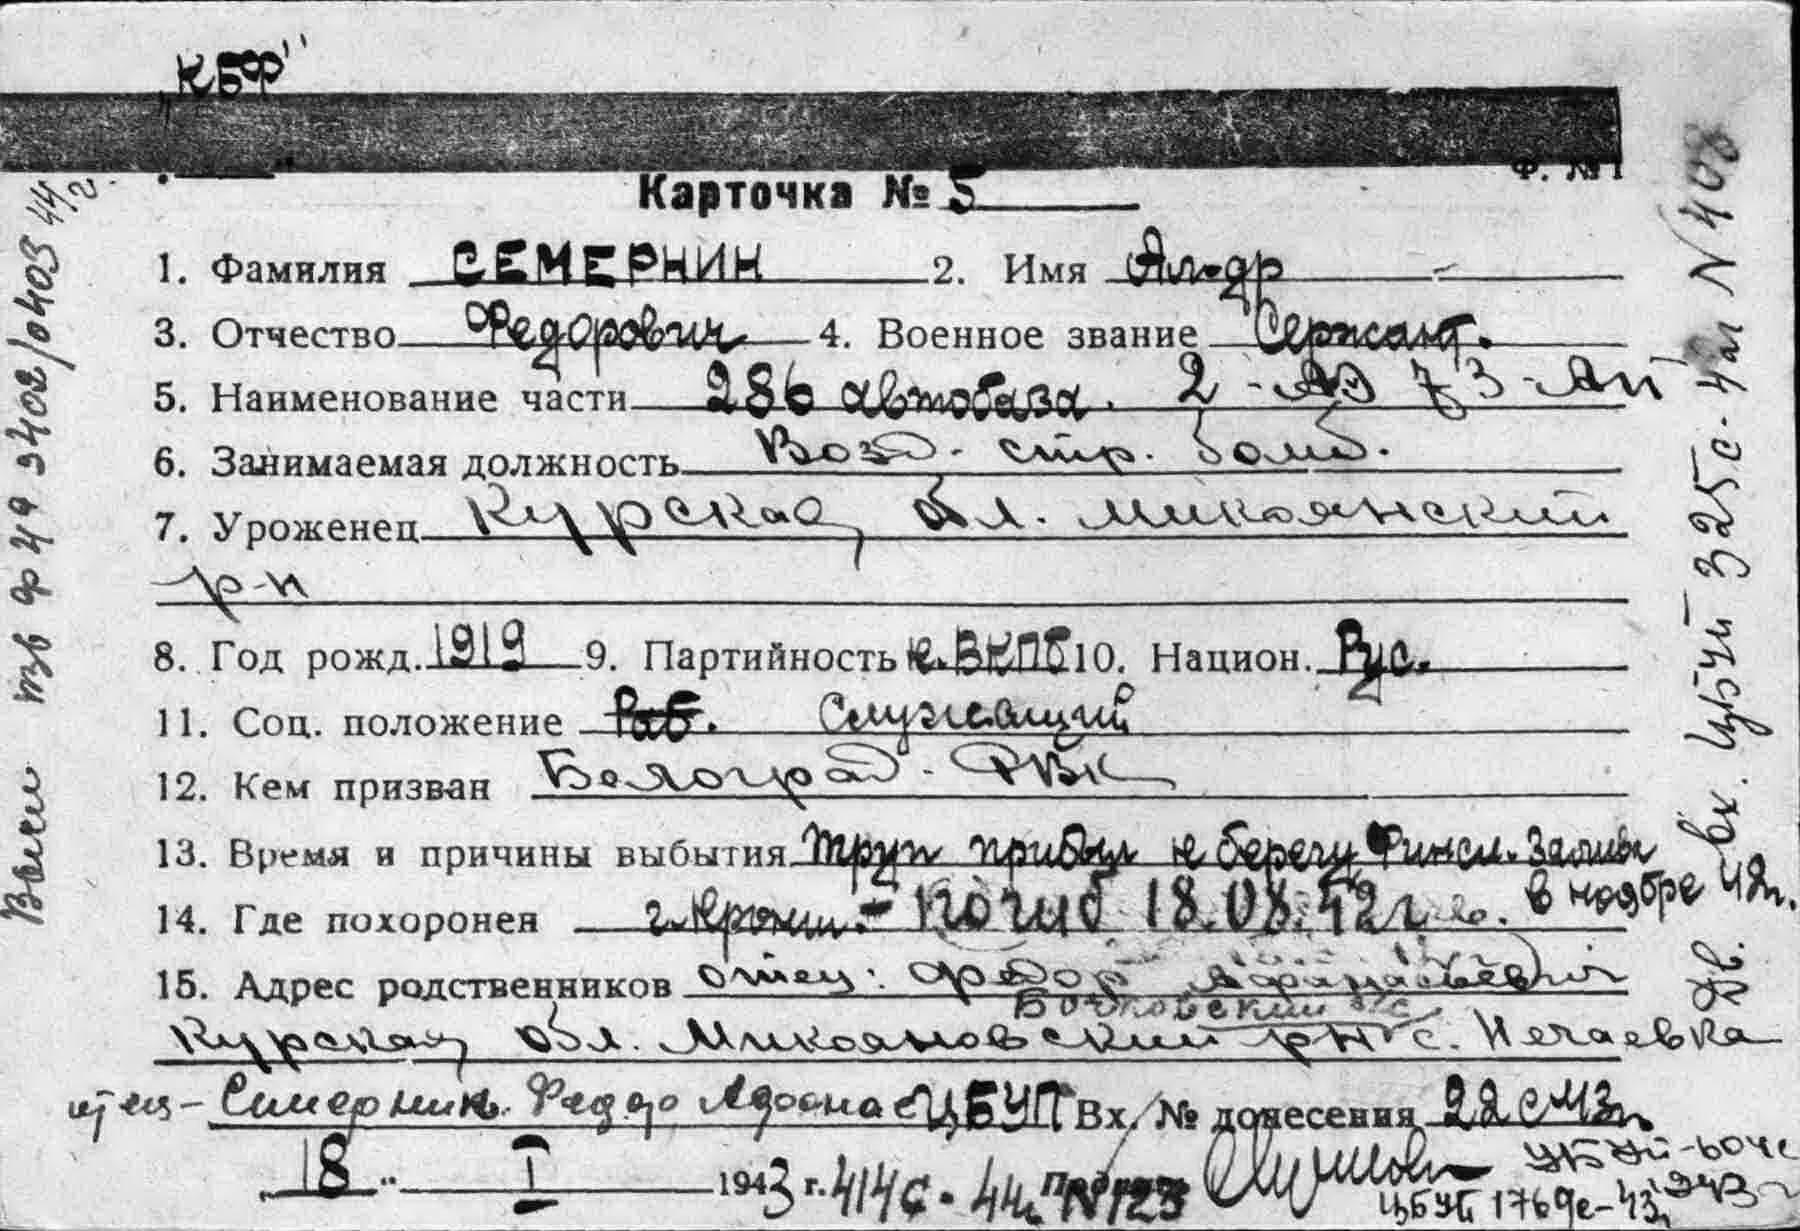 „КБФ"
Ф. № 1
Карточка № 5
1. Фамилия СЕМЕРНИН 2. Имя Ал-др
3. Отчество Федорович 4. Военное звание Сержант.
5. Наименование части 286 автобаза. 2-АЭ 73-АП
6. Занимаемая должность Возд. стр. бомб.
7. Уроженец Курская обл. Микоянский
р-н
8. Год рожд. 1919 9. Партийность к. ВКПб 10. Национ. Рус.
11. Соц. положение Раб. Служащий
12. Кем призван Белоград. РВК
13. Время и причины выбытия Труп прибыл к берегу Финск. Залива
в ноябре 42г.
14. Где похоронен г. Кронш. - Погиб 18.08.42г
15. Адрес родственников отец: Федор Афанасьевич
Бочковский с/с
Курская обл. Микояновский рн с. Нечаевка
отец - Семернин Федор Афанас ЦБУП Вх. № донесения 22с 43г
„18" I 1943 г. 414с. 44г. N 123
ЦБУП 1769с-43г
Вх. ЦБУП 325с-4
N 408
ф 419 3402/0403 44г.